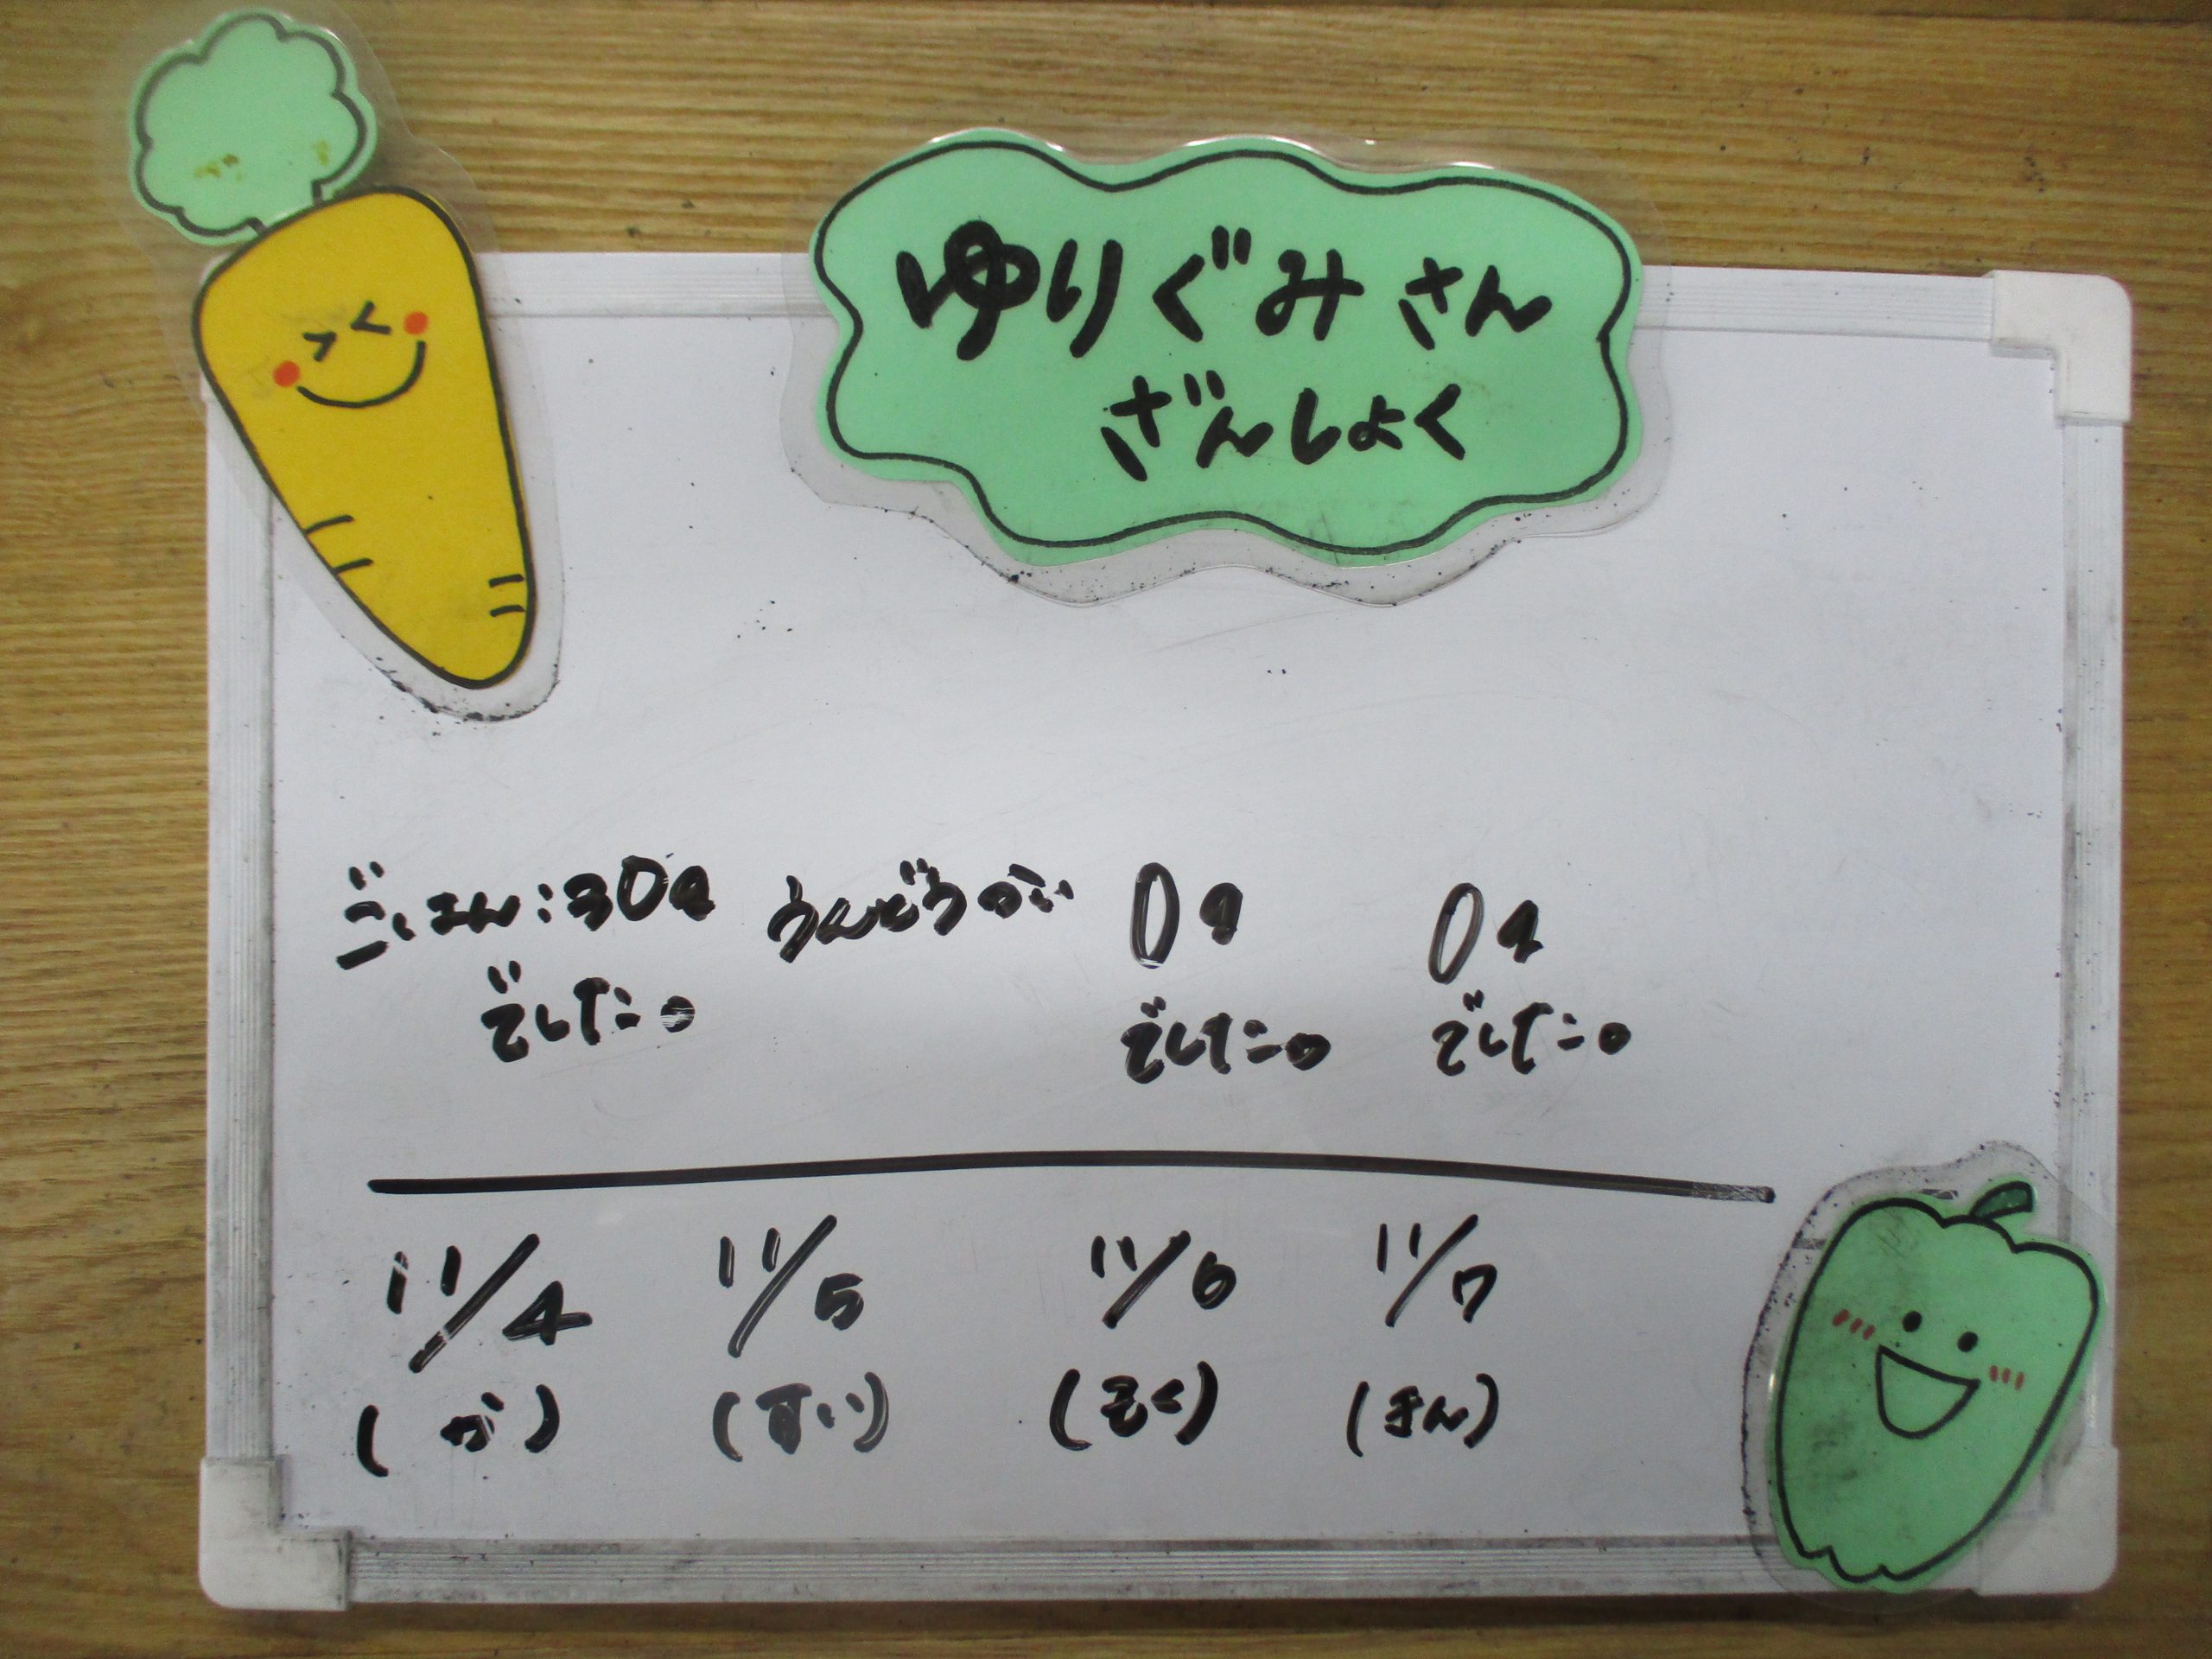 ゆりぐみさん
ざんしょく
ごはん:30g うんどうかい 0g 0g
でした。 でした。 でした。
11/4 11/5 11/6 11/7
(か) (すい) (もく) (きん)